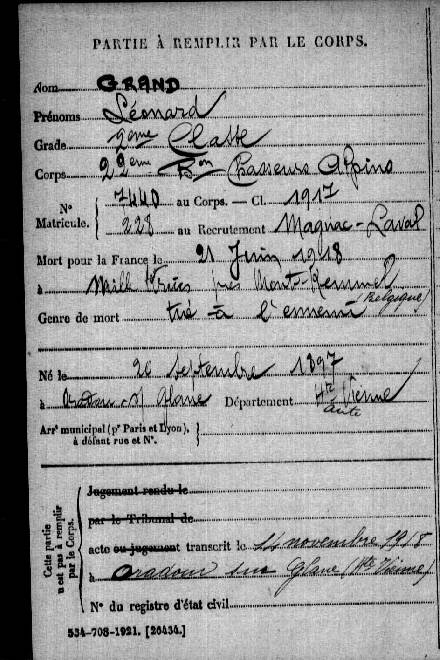 PARTIE À REMPLIR PAR LE CORPS.
Nom GRAND
Prénoms Léonard
Grade 2ème Classe
Corps 22ème Bon Chasseurs Alpins
N° Matricule. 7440 au Corps. — Cl. 1917
228 au Recrutement Magnac-Laval
Mort pour la France le 21 Juin 1918
à près Mont-Kemmel (Belgique)
Genre de mort tué à l'ennemi
Né le 20 Septembre 1897
à Oradour s/ Glane Département Hte Vienne
aute
Arrt municipal (pr Paris et Lyon), à défaut rue et N°.
Cette partie n'est pas à remplir par le Corps.
Jugement rendu le
par le Tribunal de
acte ou jugement transcrit le 14 novembre 1918
à Oradour sur Glane (Hte Vienne)
N° du registre d'état civil
534-708-1921. [26434.]